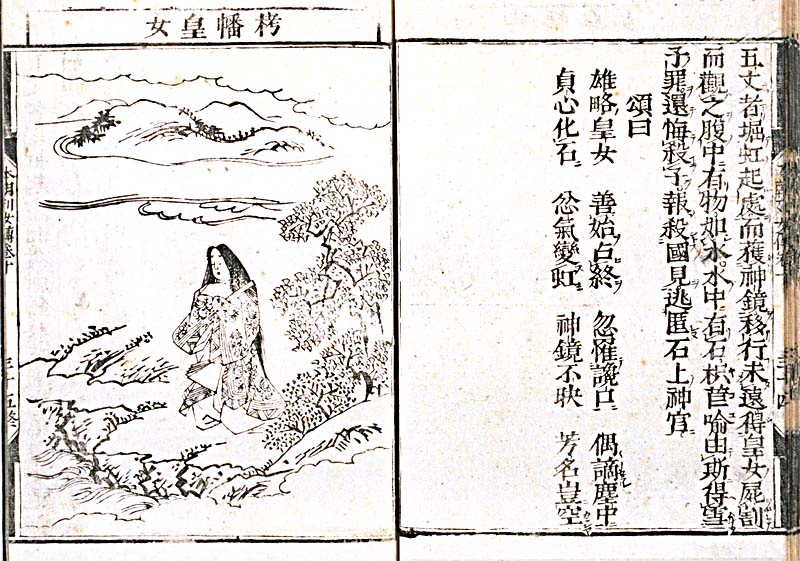 五丈者堀虹起處而獲神鏡移行未遠得皇女屍割
而觀之腹中有物如水水中有石枳莒喻由斯得雪
子罪還悔殺子報殺國見逃匿石上神宮
頌曰
雄略皇女 善始占終 忽罹讒口 偶謫塵中
貞心化石 忿氣變虹 神鏡不昳 芳名豈空
栲幡皇女
本朝列女傳卷十
三十五終